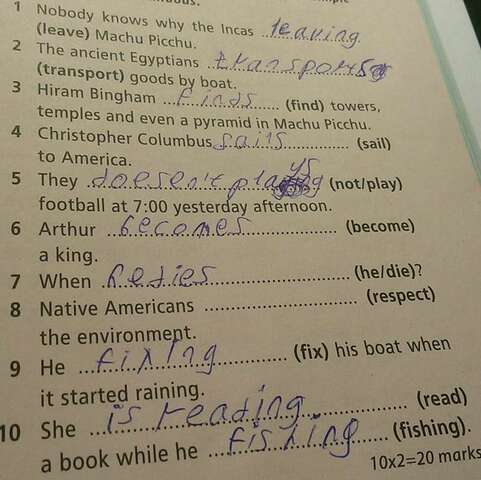 1 Nobody knows why the Incas leaving
(leave) Machu Picchu.
2 The ancient Egyptians transports
(transport) goods by boat.
3 Hiram Bingham finds (find) towers,
temples and even a pyramid in Machu Picchu.
4 Christopher Columbus sails (sail)
to America.
5 They doesen't plays (not/play)
football at 7:00 yesterday afternoon.
6 Arthur becomes (become)
a king.
7 When hedies (he/die)?
8 Native Americans (respect)
the environment.
9 He fixing (fix) his boat when
it started raining.
10 She is reading (read)
a book while he fishing (fishing).
10x2=20 marks